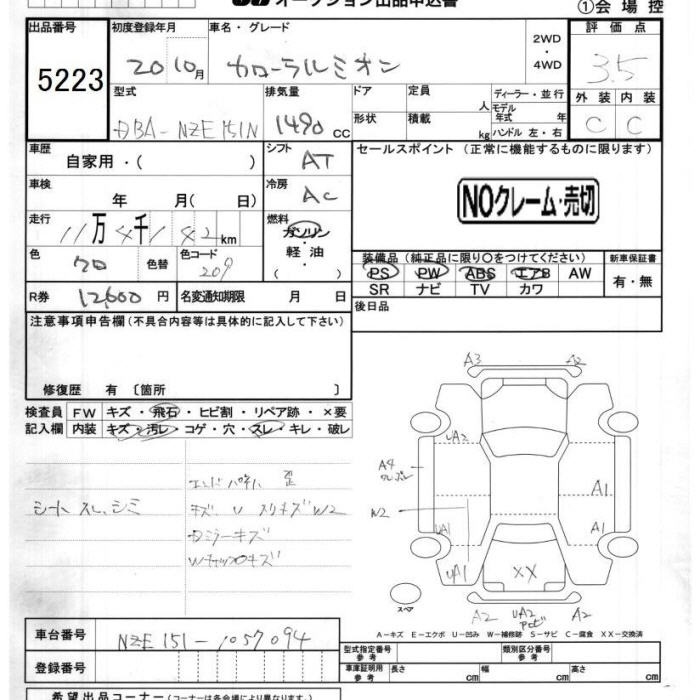 オークション出品申込書
①会場控
出品番号
5223
初度登録年月
20 10月
車名・グレード
カローラルミオン
2WD
・
4WD
評価点
3.5
型式
DBA-NZE151N
排気量
1490 CC
ドア
定員
人
形状
積載
kg
ディーラー・並行
モデル年式 年
ハンドル 左・右
外装
内装
C
C
車歴
自家用・( )
シフト
AT
セールスポイント (正常に機能するものに限ります)
NOクレーム・売切
車検
年 月( 日)
冷房
AC
走行
11万4千142km
燃料
ガソリン
・
軽油
( )
色
クロ
色替
色コード
209
装備品(純正品に限り〇をつけてください)
PS PW ABS エアB AW
SR ナビ TV カワ
新車保証書
有・無
R券
12600円
名変通知期限
月 日
後日品
注意事項申告欄(不具合内容等は具体的に記入して下さい)
修復歴 有〔箇所 〕
検査員
記入欄
FW
キズ・飛石・ヒビ割・リペア跡・×要
内装
キズ・汚レ・コゲ・穴・スレ・キレ・破レ
シートスレ、シミ
エンドパネル 歪
キズ U スリキズ W2
Dミラーキズ
Wキャップキズ
A3
A2
UA2
A4
W2
UA1
UA1
A1
A1
XX
スペア
A2
UA2
A2
A-キズ E-エクボ U-凹み W-補修跡 S-サビ C-腐食 XX-交換済
車台番号
NZE151-1057094
登録番号
型式指定番号
類別区分番号
車庫証明用
参考
長さ cm
幅 cm
高さ cm
希望出品コーナー(コーナーは各会場により異なります。)